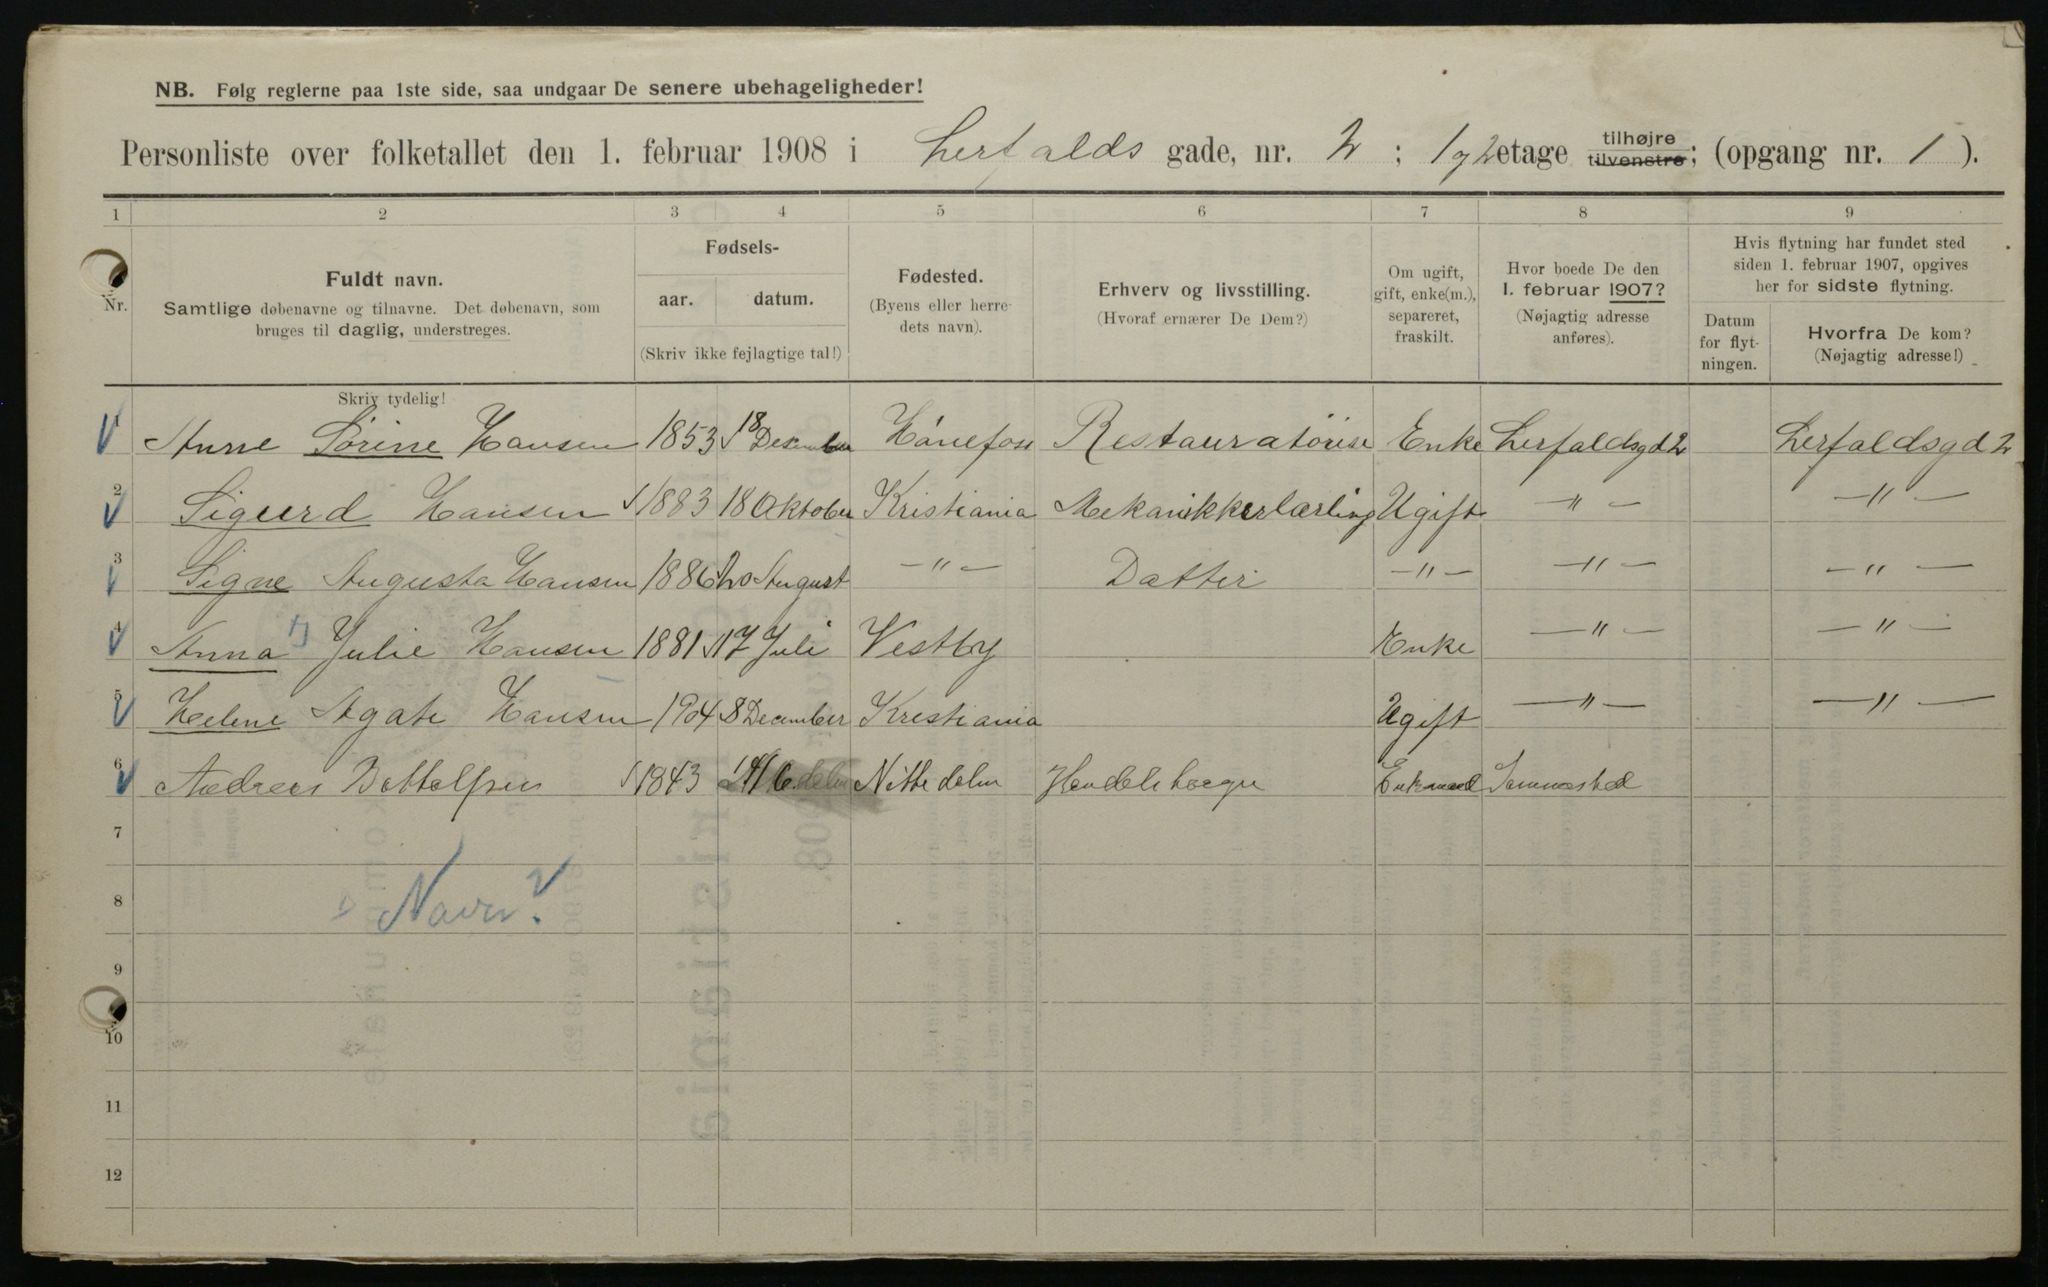 NB. Følg reglerne paa 1ste side, saa undgaar De senere ubehageligheder!
Personliste over folketallet den 1. februar 1908 i Lerfalds gade, nr. 2 ; 1 og 2 etage tilhøjre tilvenstre; (opgang nr. 1 ).
1 2 3 4 5 6 7 8 9
Nr.
Fuldt navn.
Samtlige døbenavne og tilnavne. Det døbenavn, som
bruges til daglig, understreges.
Skriv tydelig!
Fødsels-
aar. datum.
(Skriv ikke fejlagtige tal!)
Fødested.
(Byens eller herre-
dets navn).
Erhverv og livsstilling.
(Hvoraf ernærer De Dem?)
Om ugift,
gift, enke(m.),
separeret,
fraskilt.
Hvor boede De den
1. februar 1907?
(Nøjagtig adresse
anføres).
Hvis flytning har fundet sted
siden 1. februar 1907, opgives
her for sidste flytning.
Datum
for flyt-
ningen.
Hvorfra De kom?
(Nøjagtig adresse!)
1 Anne Sørine Hansen 1853 18 December Hønefoss Restauratørise Enke Lerfaldsgd 2 Lerfaldsgd 2
2 Sigurd Hansen 1883 18 Oktober Kristiania Mekanikkerlærling Ugift —"— —"—
3 Signe Augusta Hansen 1886 20 August —"— Datter —"— —"— —"—
4 Anna Julie Hansen 1881 17 Juli Vestby Enke —"— —"—
5 Helene Agate Hansen 1904 8 December Kristiania Ugift —"— —"—
6 Andreas 1843 Nittedalen Enkemand
7
8 Navn?
9
10
11
12